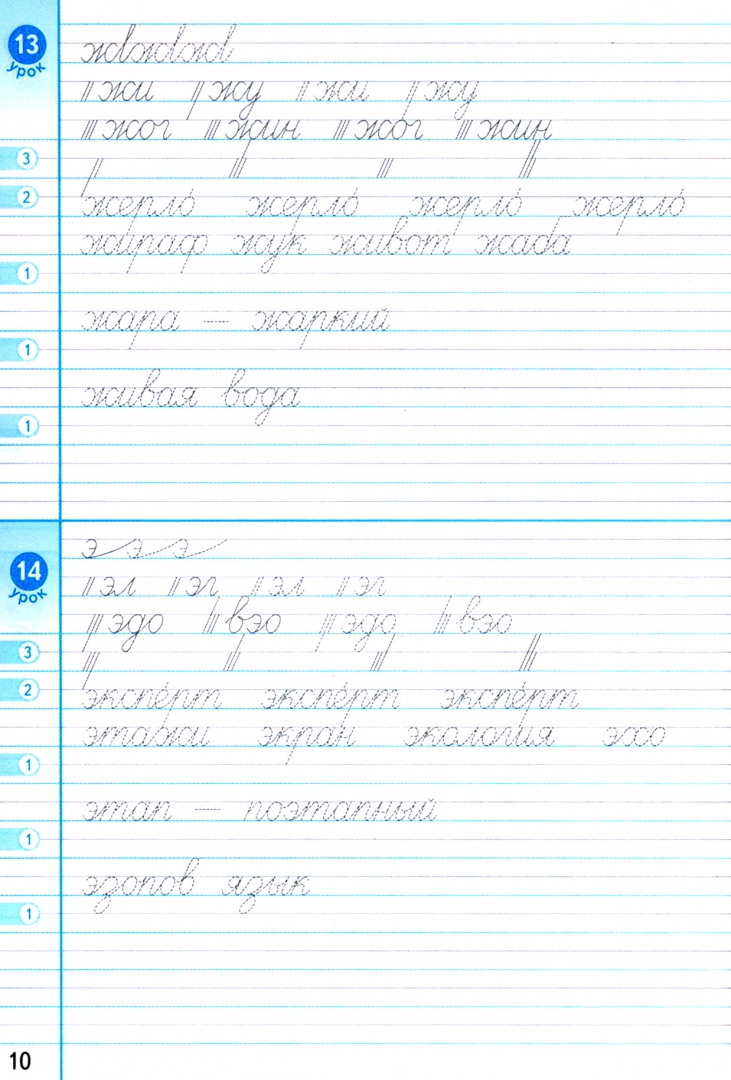 13
урок
жвжвжв
жи жу жи жу
жог жин жог жин
3
2
жерло́ жерло́ жерло́ жерло́
жираф жук живот жаба
1
жара — жаркий
1
живая вода
1
14
урок
э э э
эл эг эл эг
эдо вэо эдо вэо
3
2
экспе́рт экспе́рт экспе́рт
этажи экран экология эхо
1
этап — поэтапный
1
эзопов язык
1
10